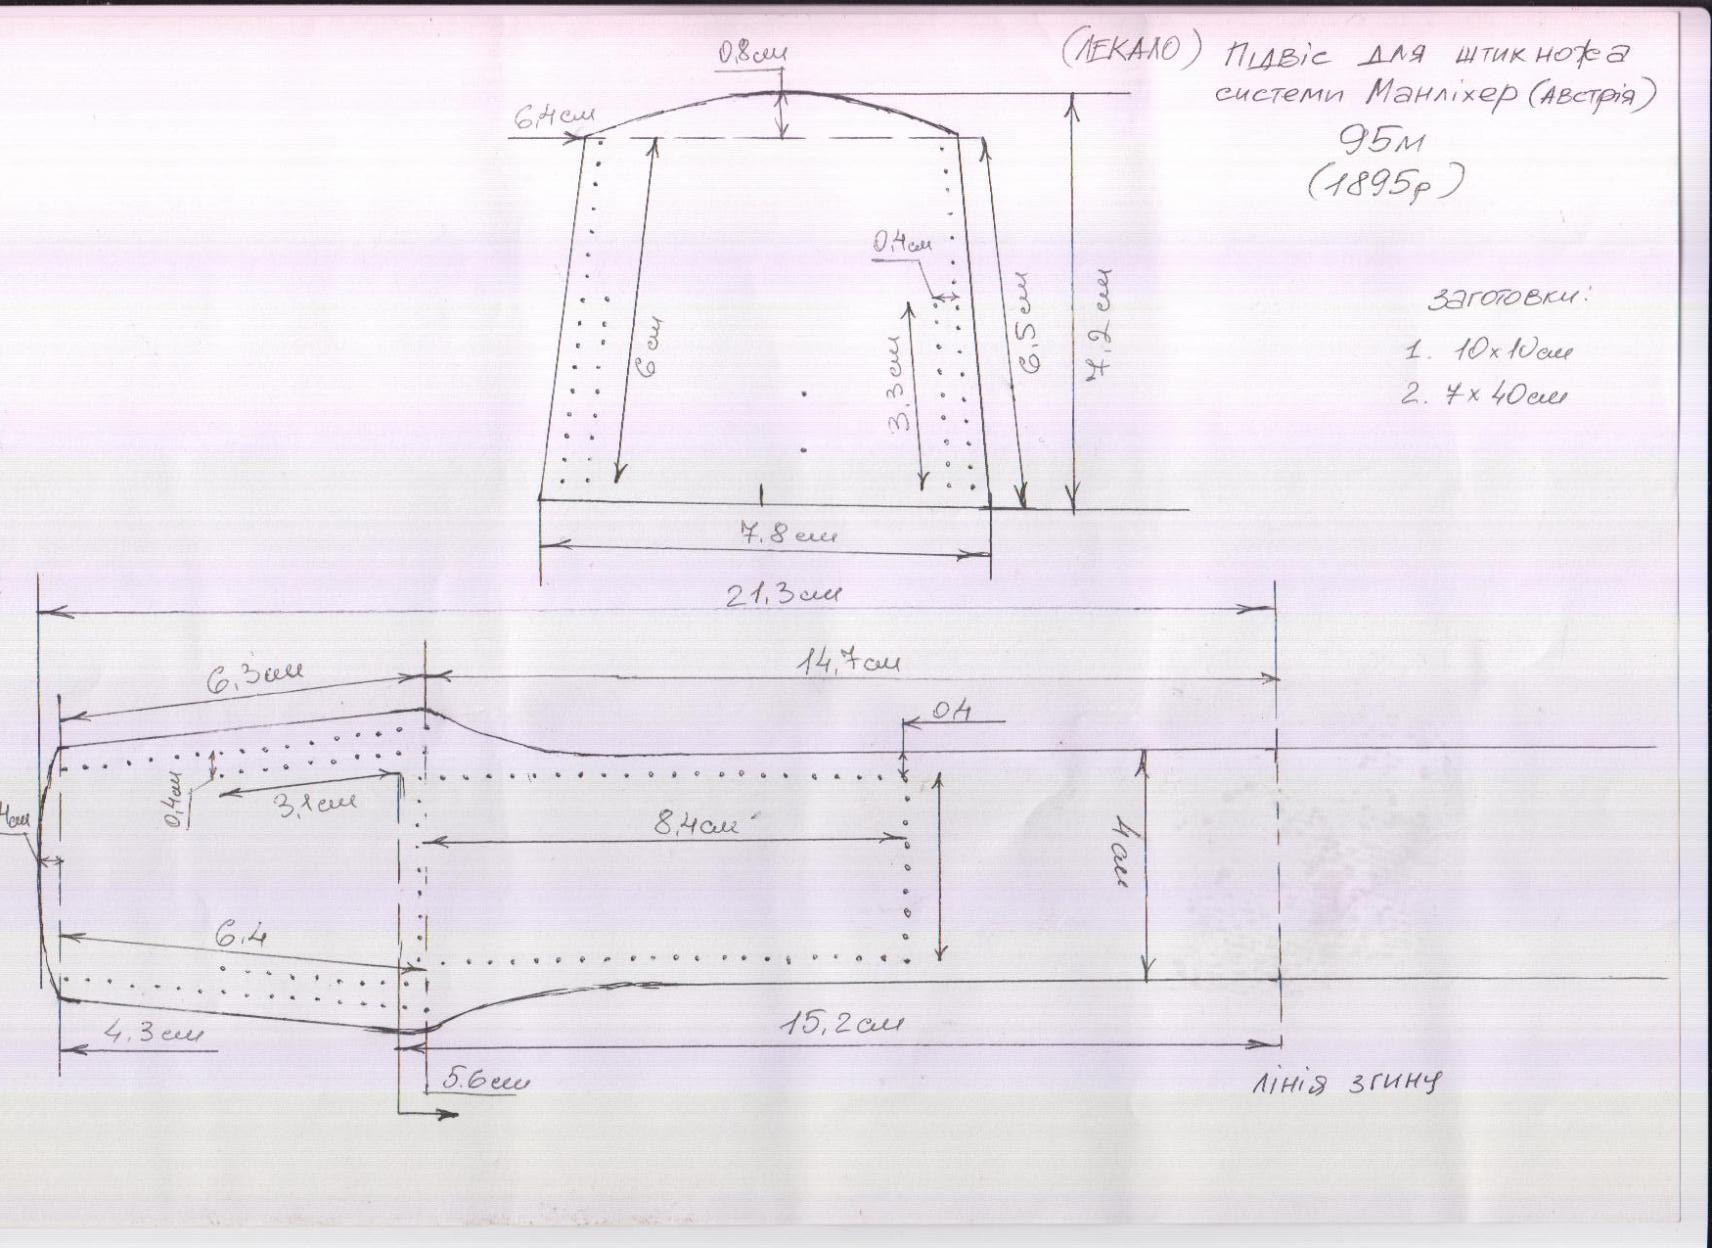 (ЛЕКАЛО) Підвіс для штик ножа
системи Манліхер (Австрія)
95м
(1895р)
заготовки:
1. 10х10см
2. 7х40см
0,8см
6,4см
0,4см
6см
3,3см
6,5см
7,2см
7,8см
21,3см
6,3см
14,7см
0,4
0,4см
3,1см
8,4см
4см
6,4
4,3см
15,2см
5.6см
лінія згину